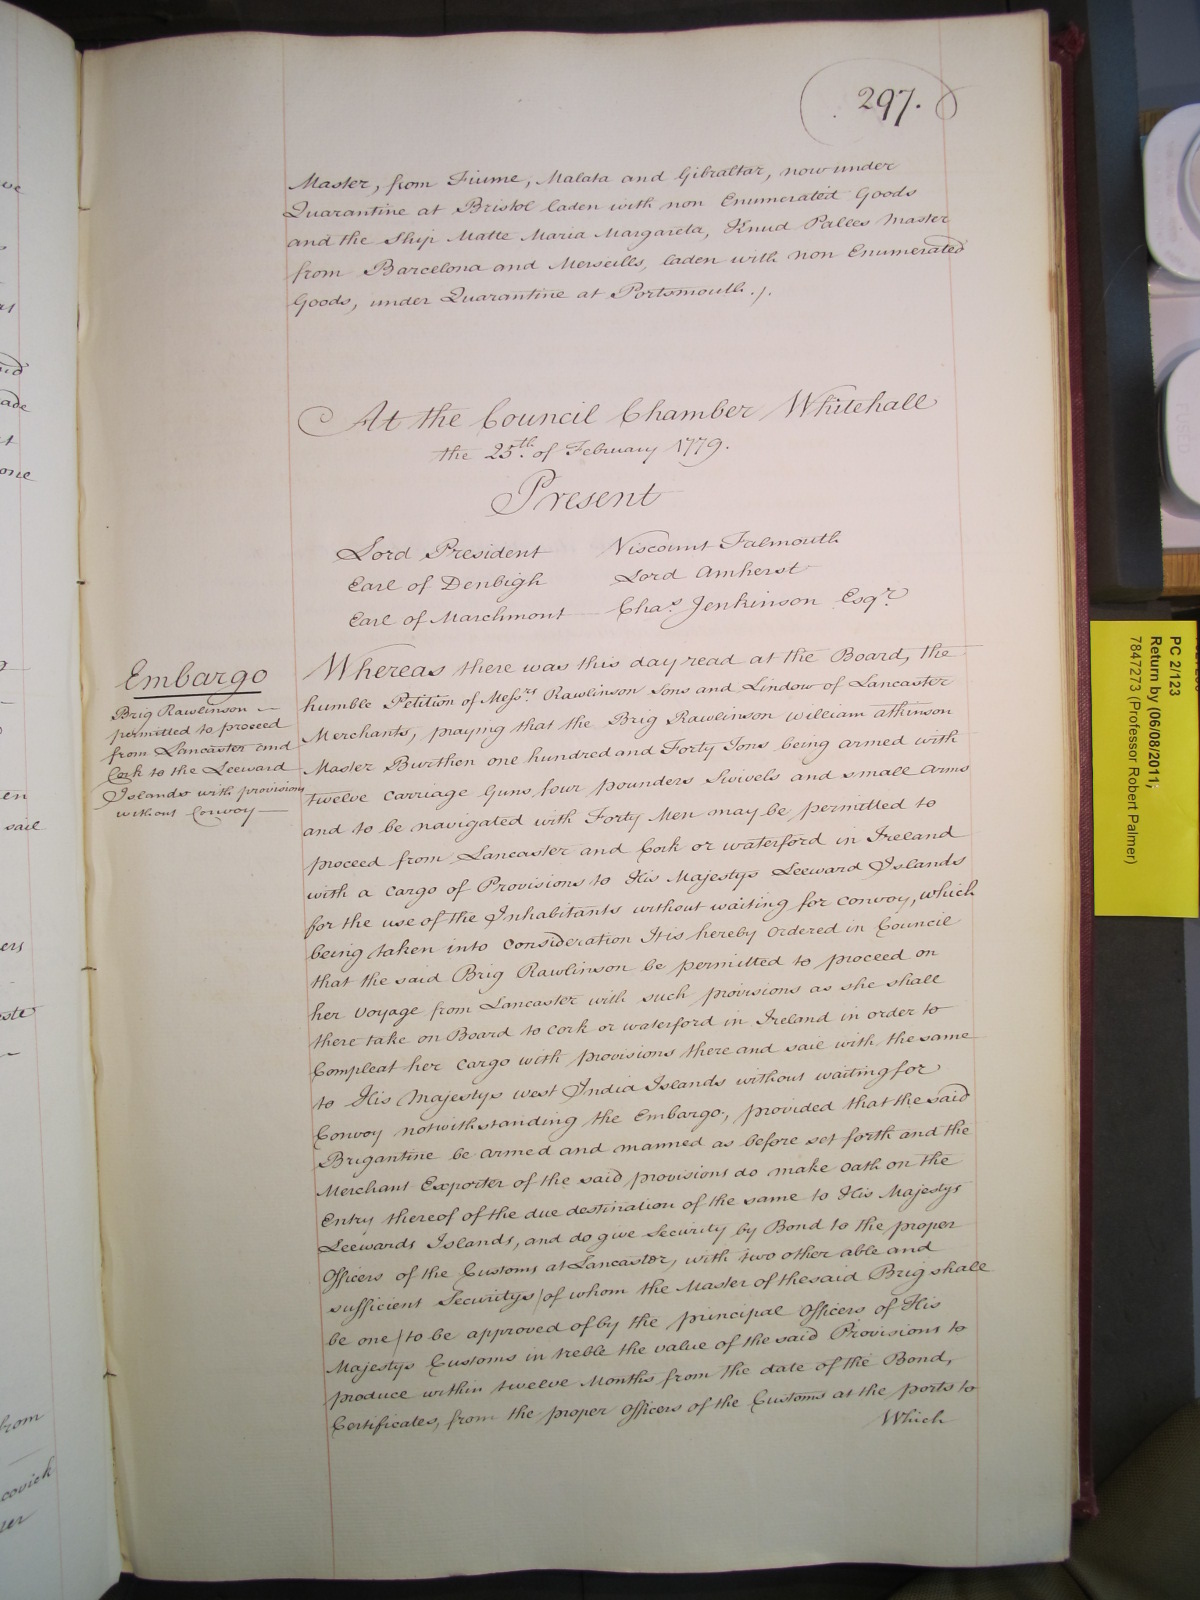 297.
Master, from Fiume, Malata and Gibraltar, now under
Quarantine at Bristol laden with non Enumerated Goods
and the Ship Matte Maria Margareta, Knud Palles Master
from Barcelona and Merseills, laden with non Enumerated
Goods, under Quarantine at Portsmouth./.
At the Council Chamber Whitehall
the 25th. of February 1779.
Present
Lord President Viscount Falmouth
Earl of Denbigh Lord Amherst
Earl of Marchmont Chas. Jenkinson Esqr.
Embargo
Brig Rawlinson
permitted to proceed
from Lancaster and
Cork to the Leeward
Islands with provisions
without Convoy
Whereas there was this day read at the Board, the
humble Petition of Messrs. Rawlinson Sons and Lindow of Lancaster
Merchants, praying that the Brig Rawlinson William Atkinson
Master Burthen one hundred and Forty Tons being armed with
twelve Carriage Guns four pounders Swivels and small Arms
and to be navigated with Forty Men may be permitted to
proceed from Lancaster and Cork or Waterford in Ireland
with a Cargo of Provisions to His Majestys Leeward Islands
for the use of the Inhabitants without waiting for Convoy, which
being taken into Consideration It is hereby Ordered in Council
that the said Brig Rawlinson be permitted to proceed on
her Voyage from Lancaster with such provisions as she shall
there take on Board to Cork or Waterford in Ireland in order to
Compleat her Cargo with provisions there and sail with the same
to His Majestys West India Islands without waiting for
Convoy notwithstanding the Embargo, provided that the said
Brigantine be armed and manned as before set forth and the
Merchant Exporter of the said provisions do make Oath on the
Entry thereof of the due destination of the same to His Majestys
Leewards Islands, and do give Security by Bond to the proper
Officers of the Customs at Lancaster, with two other able and
sufficient Securitys / of whom the Master of the said Brig shall
be one / to be approved of by the principal Officers of His
Majestys Customs in treble the value of the said Provisions to
produce within twelve Months from the date of the Bond,
Certificates, from the proper Officers of the Customs at the ports to
Which
PC 2/123
Return by (06/08/2011;
7847273 (Professor Robert Palmer)